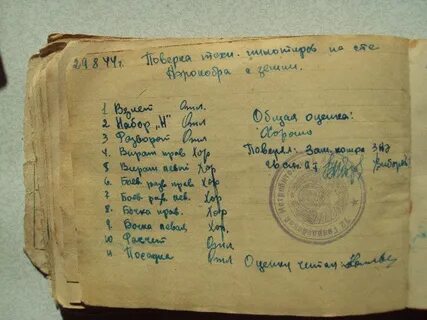 29.8.44г. Поверка техн. пилотиров. на с-те
Аэрокобра с земли.
1 Взлет Отл.
2 Набор „Н" Отл.
3 Разворот Отл
4 Вираж прав. Хор
5 Вираж левый Хор.
6 Боев. разв. прав. Хор
7 Боев. разв. лев. Хор
8 Бочка прав. Хор
9 Бочка левая Хор.
10 Расчет Отл
11 Посадка Отл
Общая оценка:
Хорошо
Поверял: Зам. комдра 3 АЭ
Оценку читал: